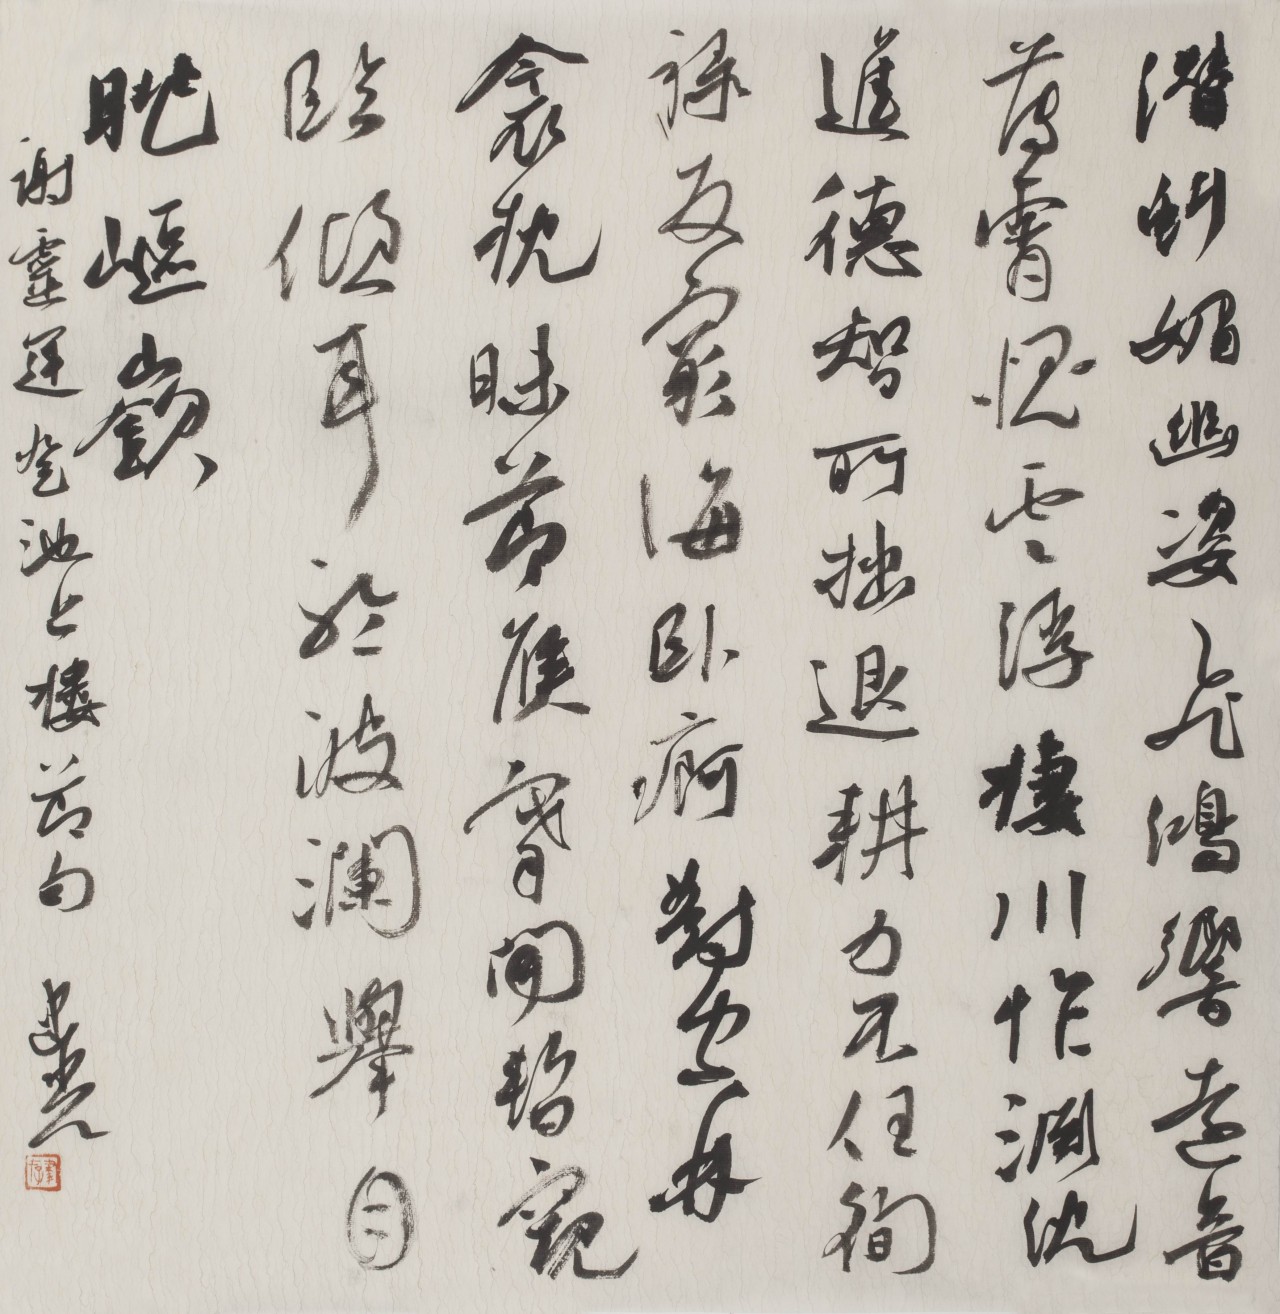 潛虯媚幽姿飛鴻響遠音
薄霄愧雲浮棲川怍淵沈
進德智所拙退耕力不任徇
祿反窮海臥痾對空林
衾枕昧節候褰開暫窺
臨傾耳聆波瀾舉目
眺嶇嶔
謝靈運登池上樓節句